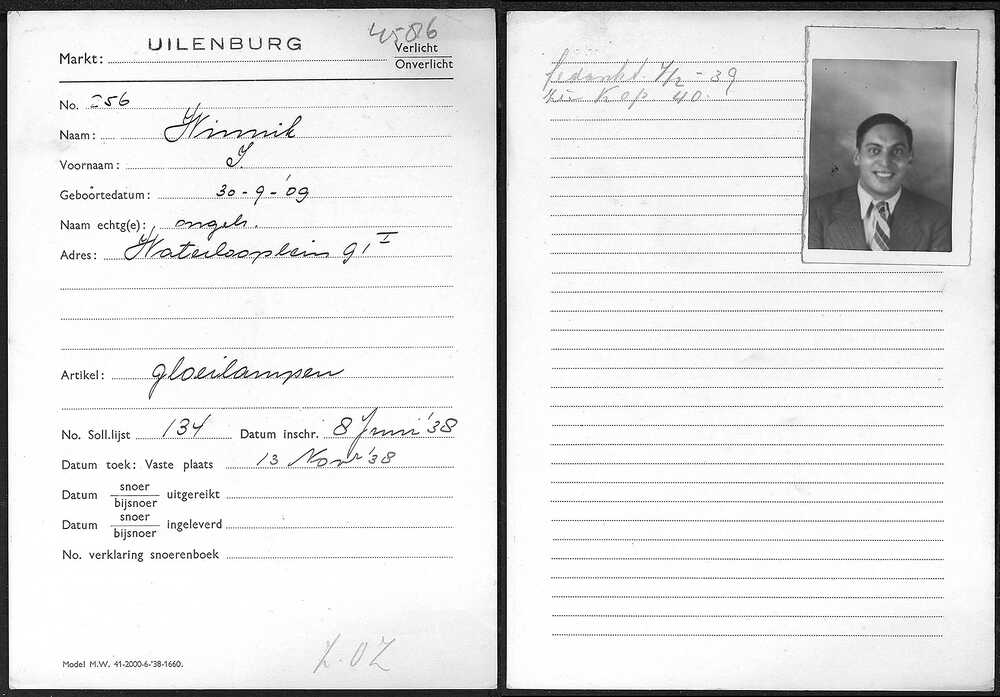 4506
Markt: UILENBURG Verlicht
Onverlicht
No. 256
Naam: Winnik
Voornaam: I.
Geboortedatum: 30-9-'09
Naam echtg(e): ongeh.
Adres: Waterlooplein 91 I
Artikel: gloeilampen
No. Soll.lijst 134 Datum inschr. 8 Juni '38
Datum toek: Vaste plaats 13 Novr '38
Datum snoer
bijsnoer uitgereikt
Datum snoer
bijsnoer ingeleverd
No. verklaring snoerenboek
Z.OZ
Model M.W. 41-2000-6-'38-1660.
bedankt 7/2-39
zie K op 40.